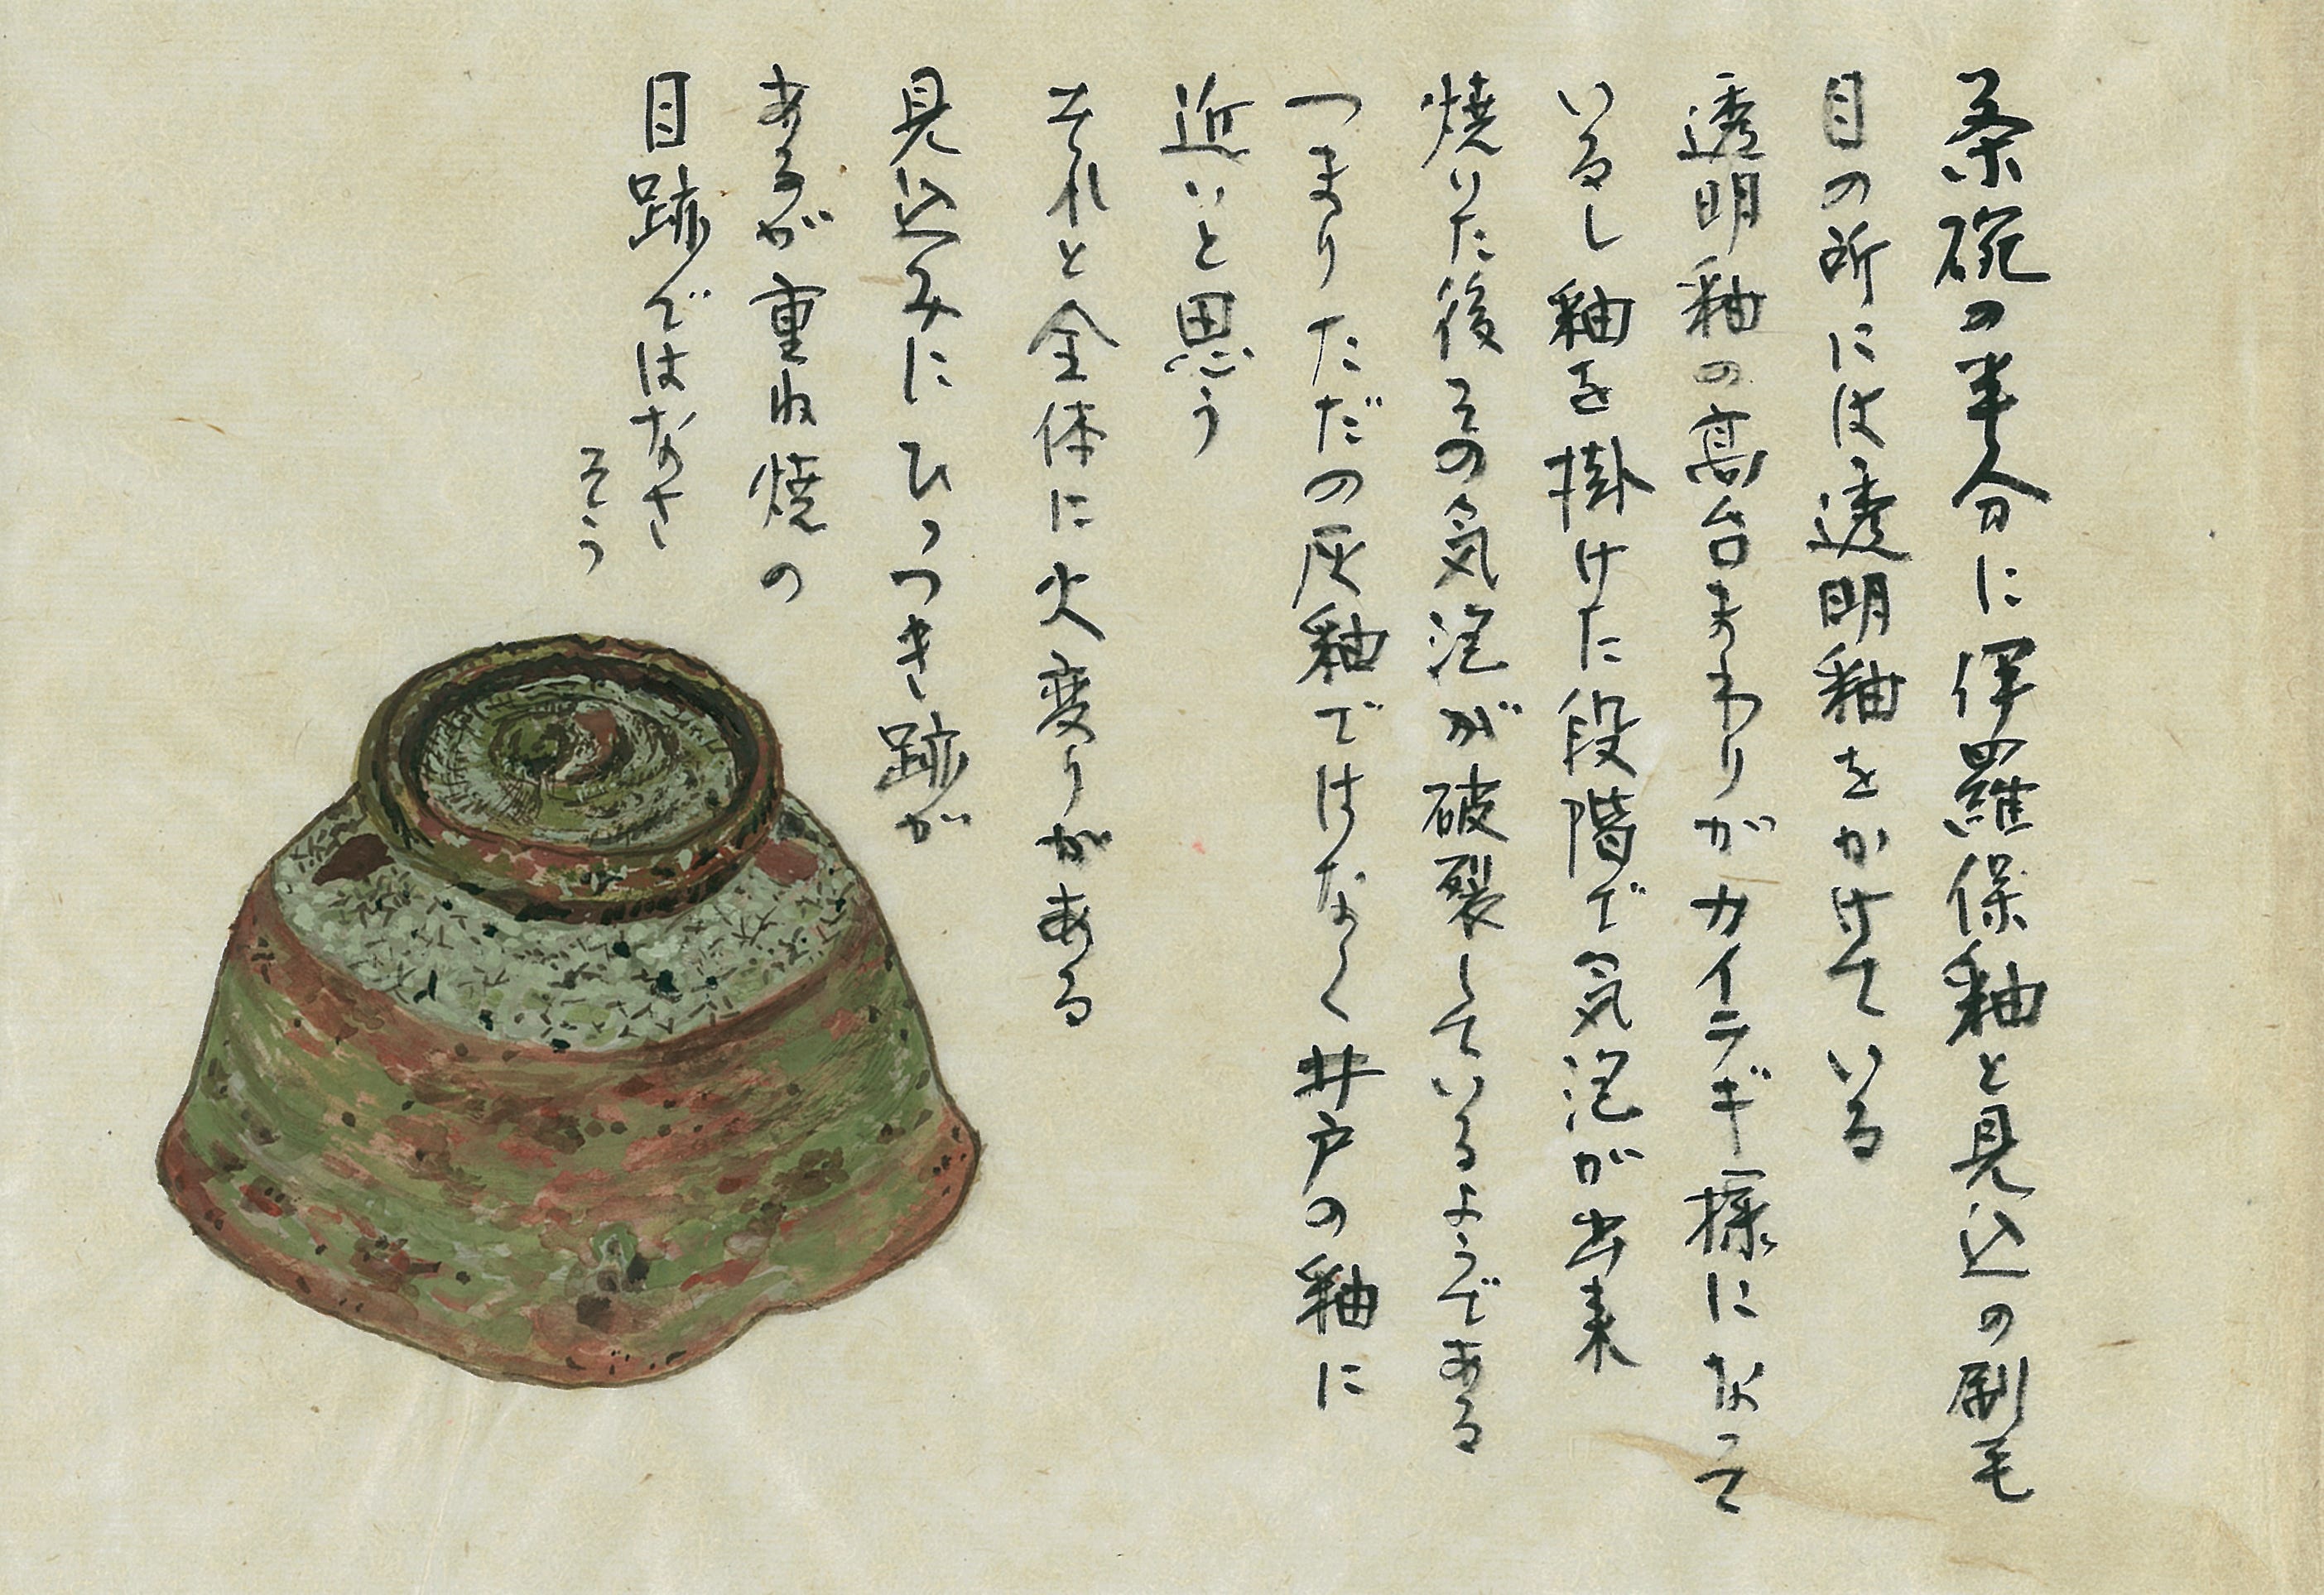 茶碗の半分に伊羅保釉と見込の刷毛
目の所には透明釉をかけている
透明釉の高台まわりがカイラギ様になって
いるし釉を掛けた段階で気泡が出来
焼いた後その気泡が破裂しているようである
つまりただの灰釉ではなく井戸の釉に
近いと思う
それと全体に火変りがある
見込みにひっつき跡が
あるが重ね焼の
目跡ではなさ
そう